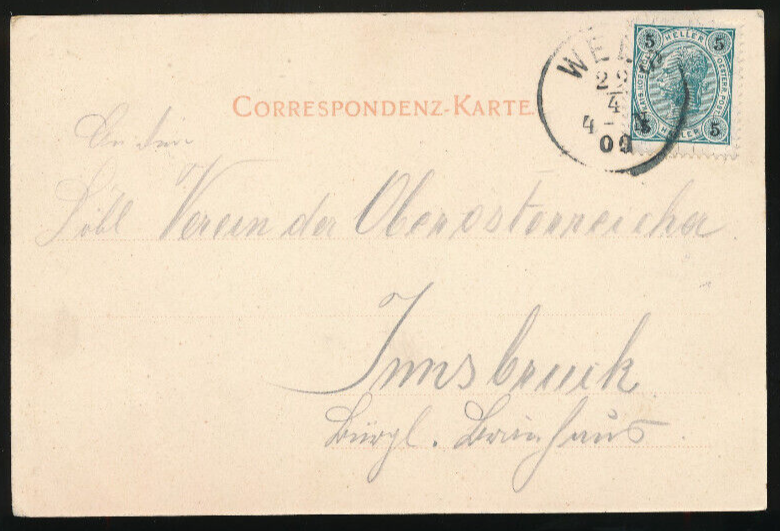 CORRESPONDENZ-KARTE.
WELS
22
4
4-
00
5 HELLER 5
5 HELLER 5
An den
Löbl Verein der Oberösterreicher
Innsbruck
Bürgl. Bräuhaus